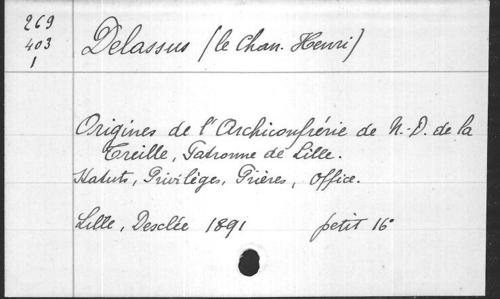 269
403
1
Delassus (le Chan. Henri)
Origines de l'Archiconfrérie de N.-D. de la
Treille, Patronne de Lille.
Statuts, Privilèges, Prières, Office.
Lille, Desclée 1891 petit 16°